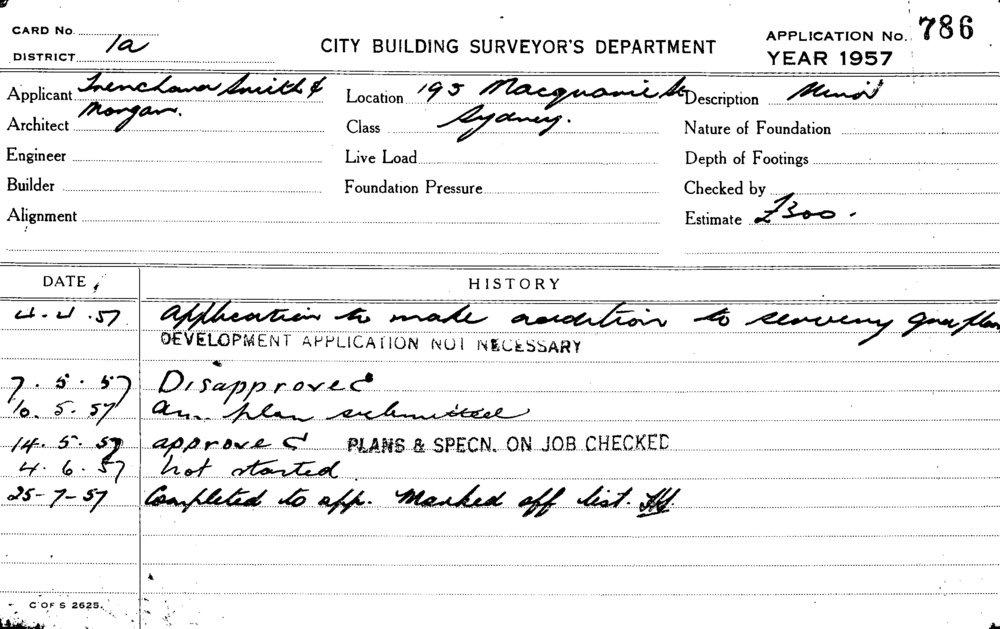 CARD No.
DISTRICT 1a
CITY BUILDING SURVEYOR'S DEPARTMENT
APPLICATION No. 786
YEAR 1957
Applicant Smith &
Morgan.
Architect
Engineer
Builder
Alignment
Location 195 Macquarie St
Sydney.
Class
Live Load
Foundation Pressure
Description Minor
Nature of Foundation
Depth of Footings
Checked by
Estimate £300.
DATE
HISTORY
4.4.57 application to make addition to
DEVELOPMENT APPLICATION NOT NECESSARY
7.5.57 Disapproved
10.5.57 Am. plan submitted
14.5.57 approved PLANS & SPECN. ON JOB CHECKED
4.6.57 Not started
25-7-57 Completed to app. Marked off list.
C OF S 2625.